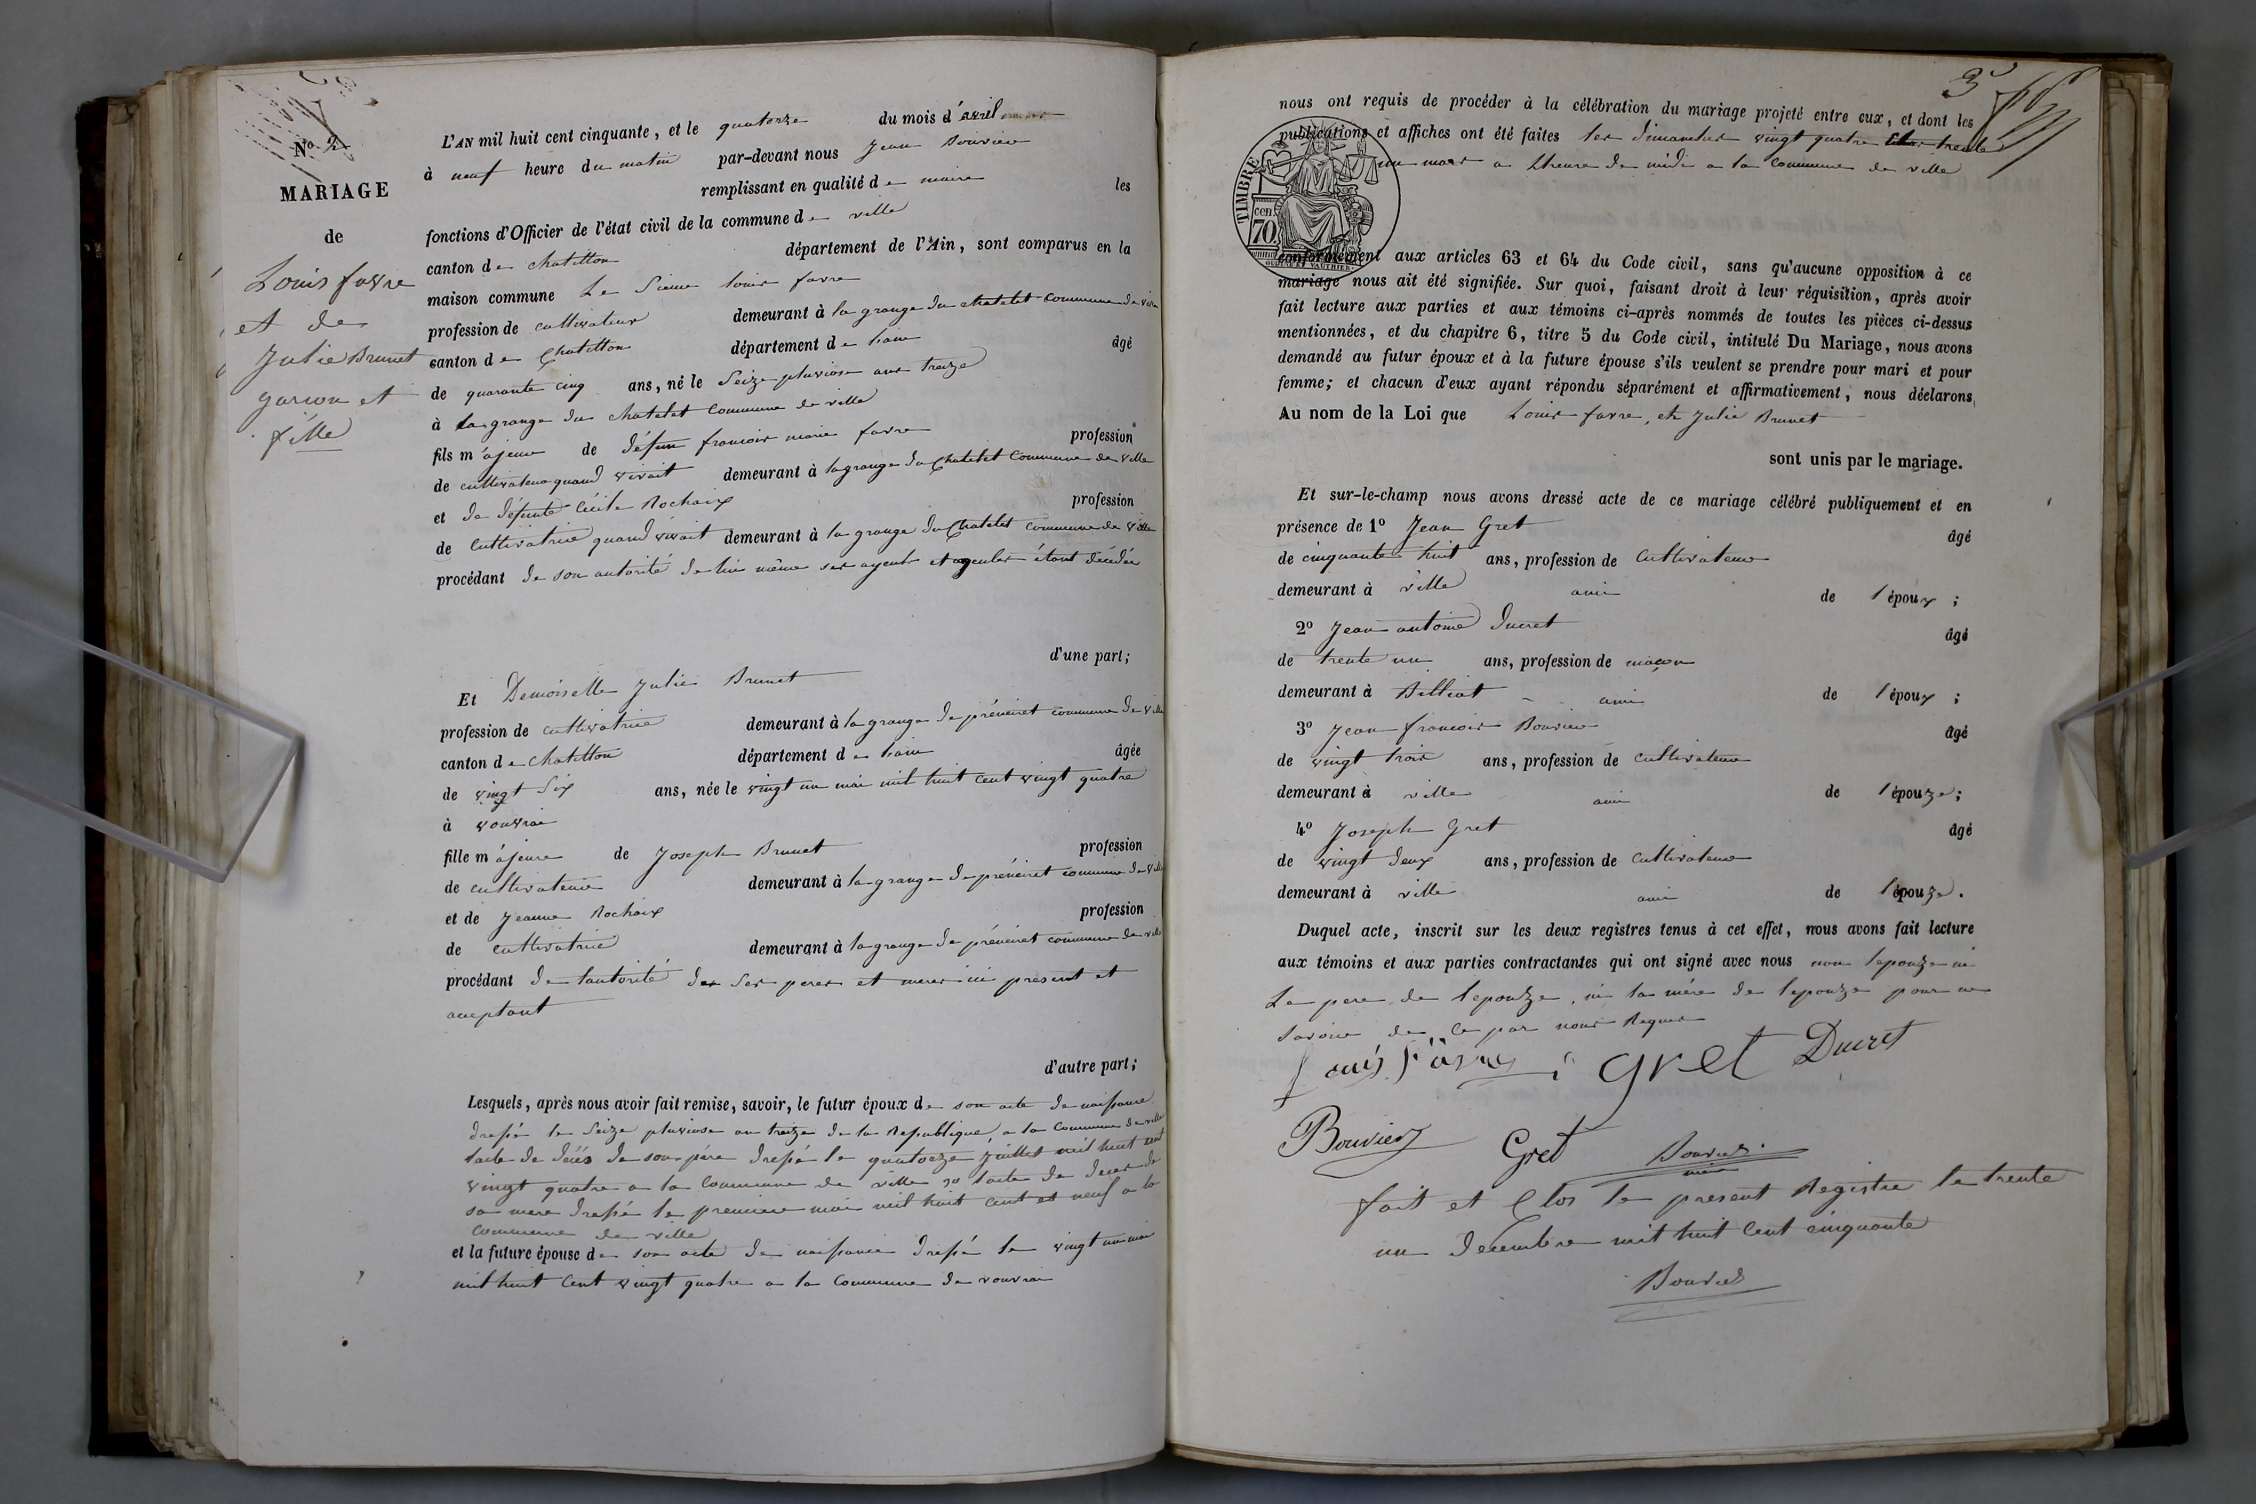 No 2
MARIAGE
de
Louis favre
et de
Julie Brunet
garcon et
fille
L'AN mil huit cent cinquante, et le quatorze du mois d'avril
à neuf heure du matin par-devant nous Jean Bouvier
remplissant en qualité de maire les
fonctions d'Officier de l'état civil de la commune de ville
canton de chatillon département de l'Ain, sont comparus en la
maison commune Le Sieur louis favre
profession de cultivateur demeurant à la grange du chatelet commune de ville
canton de Chatillon département de lain âgé
de quarante cinq ans, né le Seize pluviose ans treize
à la grange du chatelet commune de ville
fils majeur de défun francois marie favre profession
de cultivateur quand vivait demeurant à la grange du Chatelet commune de ville
et de défunte Cécile Rochaix profession
de cultivatrice quand vivait demeurant à la grange du Chatelet commune de ville
procédant de son autorité de lui même ses ayeuls et ayeules étant décédés
d'une part;
Et Demoiselle Julie Brunet
profession de cultivatrice demeurant à la grange de commune de ville
canton de chatillon département de lain âgée
de vingt Six ans, née le vingt un mai mil huit cent vingt quatre
à vouvrai
fille majeure de Joseph Brunet profession
de cultivateur demeurant à la grange de commune de ville
et de Jeanne Rochaix profession
de cultivatrice demeurant à la grange de commune de ville
procédant de lautorité des Ses peres et meres ici présent et
aceptant
d'autre part;
Lesquels, après nous avoir fait remise, savoir, le futur époux de son acte de naissance
dressé le Seize pluviose an treize de la Republique, a la commune de ville
lacte de décés de son pére dressé le quatorze juillet mil huit cent
vingt quatre a la commune de ville lacte de deces de
sa mere dressé le premier mai mil huit cent et neuf a la
commune de ville
et la future épouse de son acte de naissance dressé le vingt un mai
mil huit cent vingt quatre a la commune de vouvrai
3
nous ont requis de procéder à la célébration du mariage projeté entre eux, et dont les
publications et affiches ont été faites les dimanches vingt quatre trente
un mars a lheure de midi a la commune de ville
TIMBRE
cen 70
conformément aux articles 63 et 64 du Code civil, sans qu'aucune opposition à ce
mariage nous ait été signifiée. Sur quoi, faisant droit à leur réquisition, après avoir
fait lecture aux parties et aux témoins ci-après nommés de toutes les pièces ci-dessus
mentionnées, et du chapitre 6, titre 5 du Code civil, intitulé Du Mariage, nous avons
demandé au futur époux et à la future épouse s'ils veulent se prendre pour mari et pour
femme; et chacun d'eux ayant répondu séparément et affirmativement, nous déclarons,
Au nom de la Loi que Louis favre, et Julie Brunet
sont unis par le mariage.
Et sur-le-champ nous avons dressé acte de ce mariage célébré publiquement et en
présence de 1o Jean Gret âgé
de cinquante huit ans, profession de cultivateur
demeurant à ville ami de l'époux;
2o Jean antoine Ducret âgé
de trente un ans, profession de maçon
demeurant à Billiat ami de l'époux;
3o Jean francois Bouvier âgé
de vingt trois ans, profession de cultivateur
demeurant à ville ami de l'épouze;
4o Joseph Gret âgé
de vingt deux ans, profession de cultivateur
demeurant à ville ami de l'épouze.
Duquel acte, inscrit sur les deux registres tenus à cet effet, nous avons fait lecture
aux témoins et aux parties contractantes qui ont signé avec nous non lepouze ni
Le pere de lepouze, ni la mére de lepouze pour ne
Savoir de ce par nous Requis
Louis favre gret Ducret
Bouvier Gret Bouvier
maire
fait et Clos le present Registre le trente
un decembre mil huit cent cinquante
Bouvier